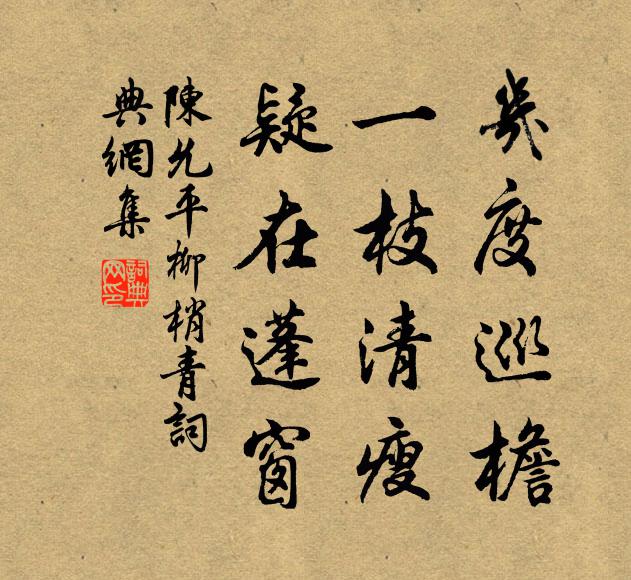 幾度巡檐
一枝清瘦
疑在蓬窗
陳允平柳梢青詞
典網集
詞典网印